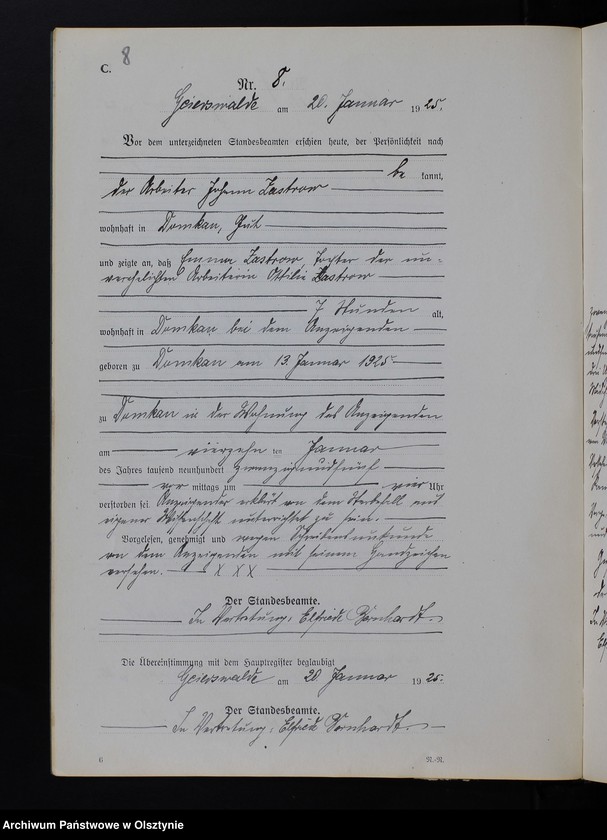 8
C.
Nr. 8.
Geierswalde am 20. Januar 1925.
Vor dem unterzeichneten Standesbeamten erschien heute, der Persönlichkeit nach
be kannt,
der Arbeiter Johann Zastrow
wohnhaft in Domkau, Gut
und zeigte an, daß Emma Zastrow, Tochter der un-
verehelichten Arbeiterin Ottilie Zastrow
7 Stunden alt,
wohnhaft in Domkau bei dem Anzeigenden
geboren zu Domkau am 13. Januar 1925
zu Domkau in der Wohnung des Anzeigenden
am vierzehn ten Januar
des Jahres tausend neunhundert zwanzigundfünf
vor mittags um vier Uhr
verstorben sei. Anzeigender erklärt von dem Sterbefall aus
eigener Wissenschaft unterrichtet zu sein.
Vorgelesen, genehmigt und wegen Schreibensunkunde
von dem Anzeigenden mit seinem Handzeichen
versehen. x x x
Der Standesbeamte.
In Vertretung: Elfriede Bornhardt.
Die Übereinstimmung mit dem Hauptregister beglaubigt
Geierswalde am 20. Januar 1925.
Der Standesbeamte.
In Vertretung: Elfriede Bornhardt.
6
N.-R.
Archiwum Państwowe w Olsztynie